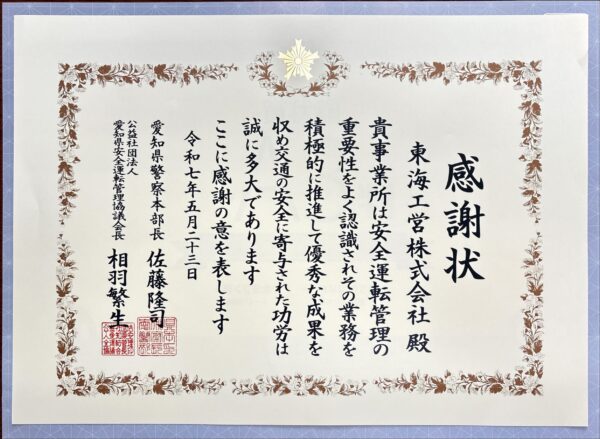 感謝状
東海工営株式会社 殿
貴事業所は安全運転管理の
重要性をよく認識されその業務を
積極的に推進して優秀な成果を
収め交通の安全に寄与された功労は
誠に多大であります
ここに感謝の意を表します
令和七年五月二十三日
愛知県警察本部長 佐藤隆司
公益社団法人
愛知県安全運転管理協議会長 相羽繁生